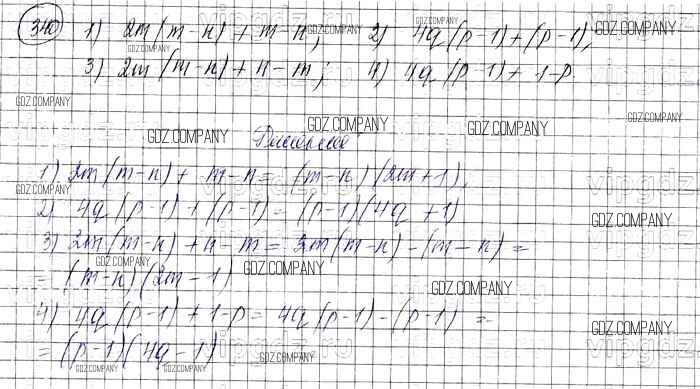 340 1) 2m(m-n) + m-n; 2) 4q(p-1)+(p-1);
3) 2m(m-n) + n-m; 4) 4q(p-1) + 1-p.
Решение
1) 2m(m-n) + m-n = (m-n)(2m+1);
2) 4q(p-1)+(p-1) = (p-1)(4q+1)
3) 2m(m-n) + n-m = 2m(m-n) - (m-n) =
= (m-n)(2m-1)
4) 4q(p-1) + 1-p = 4q(p-1) - (p-1) =
= (p-1)(4q-1)
GDZ.COMPANY
vipgdz.ru